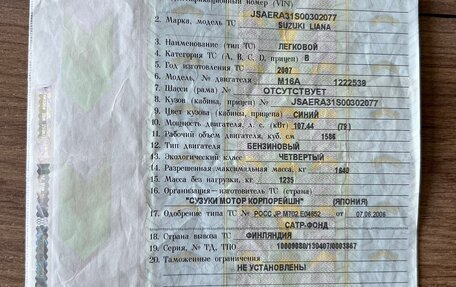 Идентификационный номер (VIN)
JSAERA31S00302077
2. Марка, модель ТС SUZUKI LIANA
3. Наименование (тип ТС) ЛЕГКОВОЙ
4. Категория ТС (A, B, C, D, прицеп) B
5. Год изготовления ТС 2007
6. Модель, № двигателя M16A 1222539
7. Шасси (рама) № ОТСУТСТВУЕТ
8. Кузов (кабина, прицеп) № JSAERA31S00302077
9. Цвет кузова (кабины, прицепа) СИНИЙ
10. Мощность двигателя, л. с. (кВт) 107.44 (79)
11. Рабочий объем двигателя, куб. см 1586
12. Тип двигателя БЕНЗИНОВЫЙ
13. Экологический класс ЧЕТВЕРТЫЙ
14. Разрешенная максимальная масса, кг 1640
15. Масса без нагрузки, кг 1235
16. Организация—изготовитель ТС (страна)
"СУЗУКИ МОТОР КОРПОРЕЙШН" (ЯПОНИЯ)
17. Одобрение типа ТС № РОСС JP.MT02.E04652 от 07.06.2006
САТР-ФОНД
18. Страна вывоза ТС ФИНЛЯНДИЯ
19. Серия, № ТД, ТПО 10009080/130407/0003867
20. Таможенные ограничения
НЕ УСТАНОВЛЕНЫ